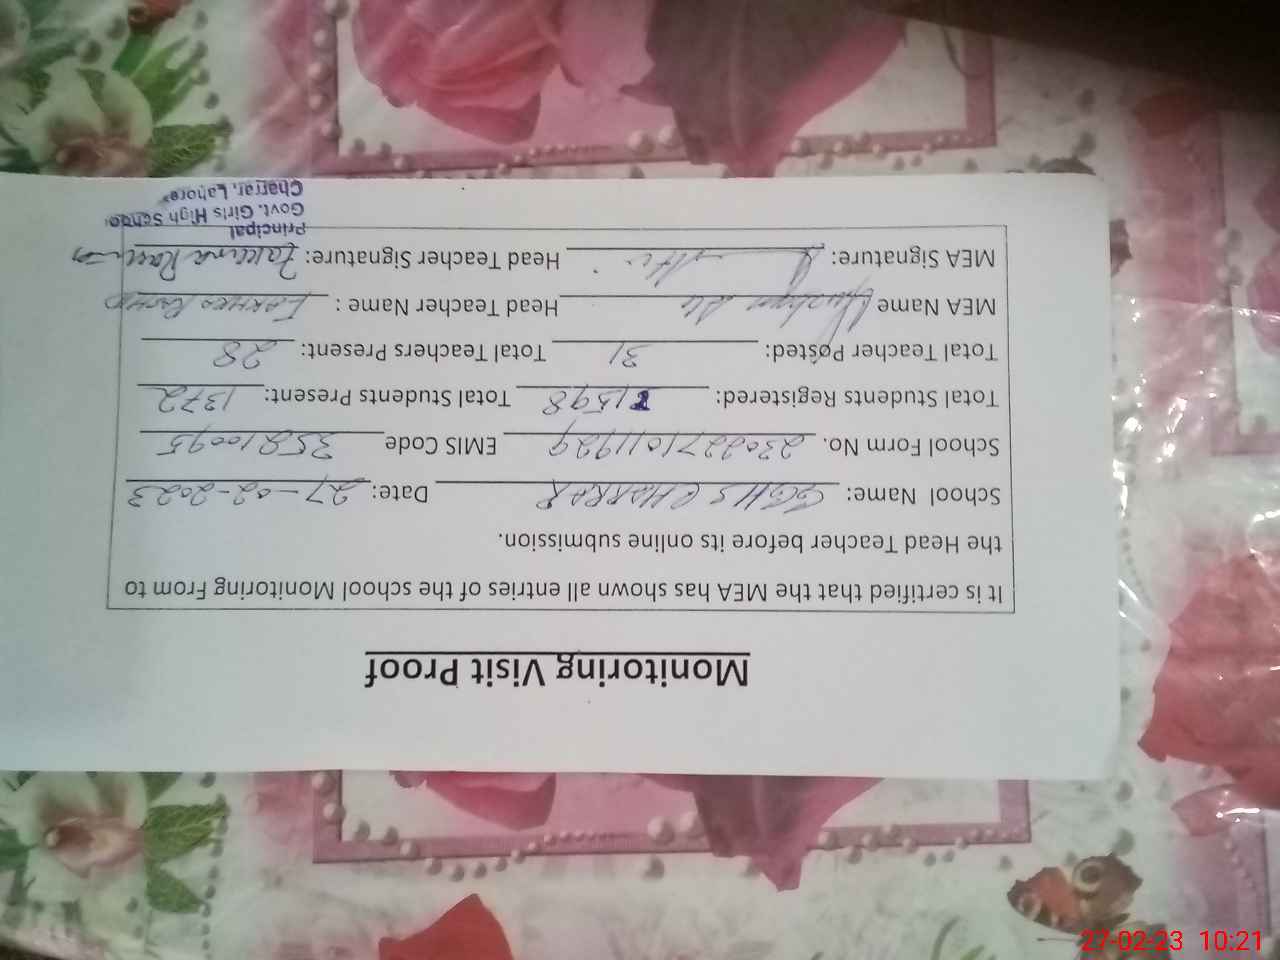 Monitoring Visit Proof
It is certified that the MEA has shown all entries of the school Monitoring From to
the Head Teacher before its online submission.
School Name: GGHS CHARRAR Date: 27-02-2023
School Form No. 2302271011929 EMIS Code 35210095
Total Students Registered: 1598 Total Students Present: 1372
Total Teacher Posted: 31 Total Teachers Present: 28
MEA Name Head Teacher Name :
MEA Signature: Head Teacher Signature:
Principal
Govt. Girls High School
Charrar, Lahore
27-02-23 10:21